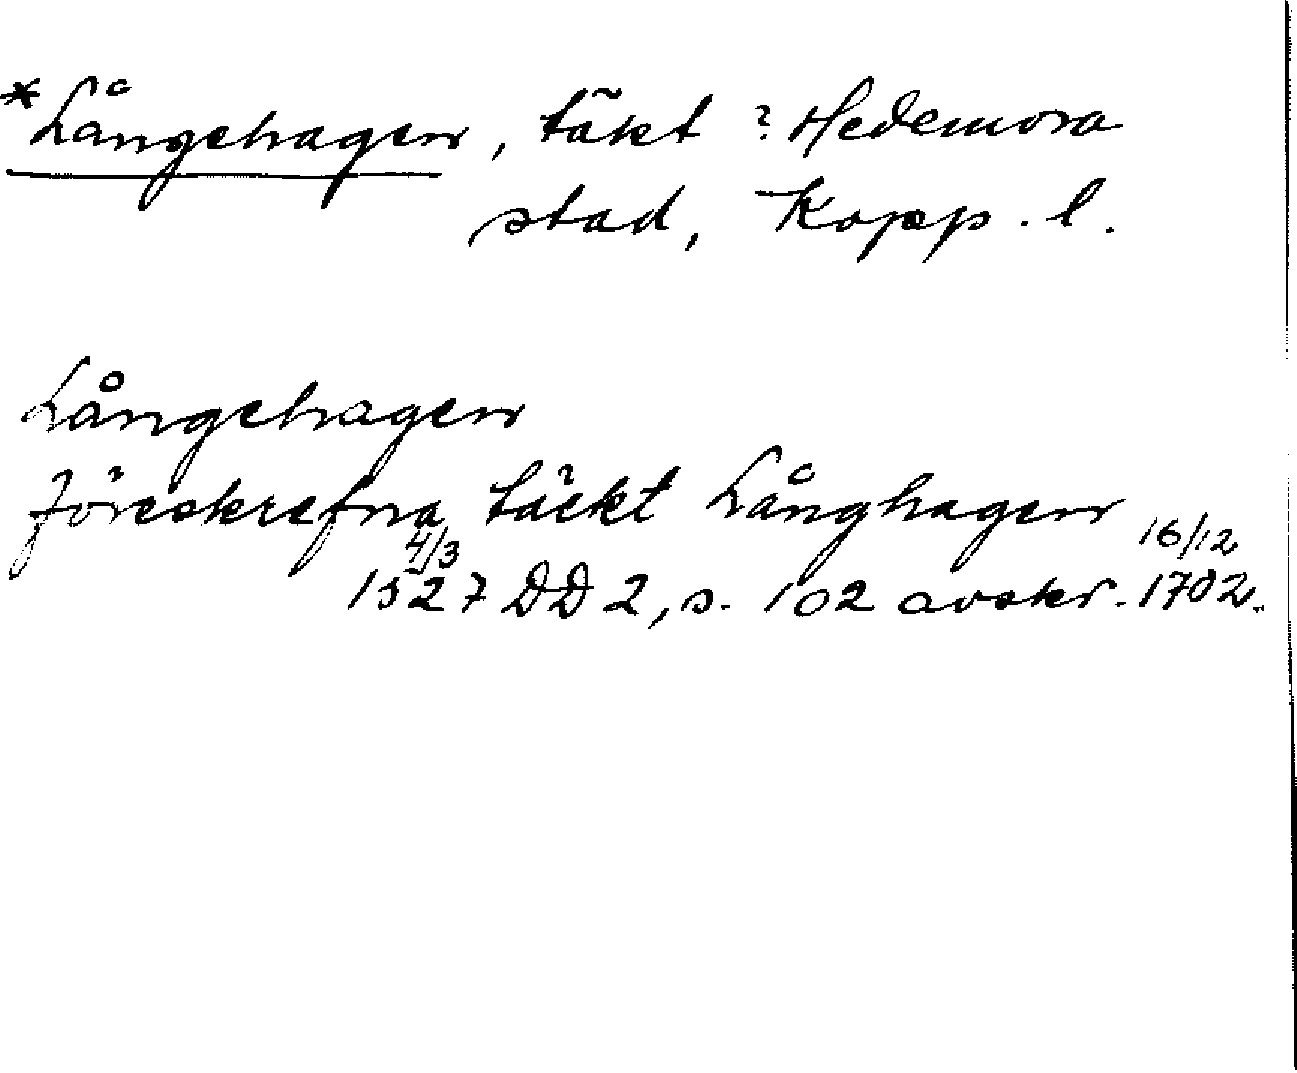 *Långehagen, täkt ? Hedemora
stad, Kopp. l.
Långehagen
föreskrefna täckt Långhagen
4/3 16/12
1527 DD 2, s. 102 avskr. 1702.